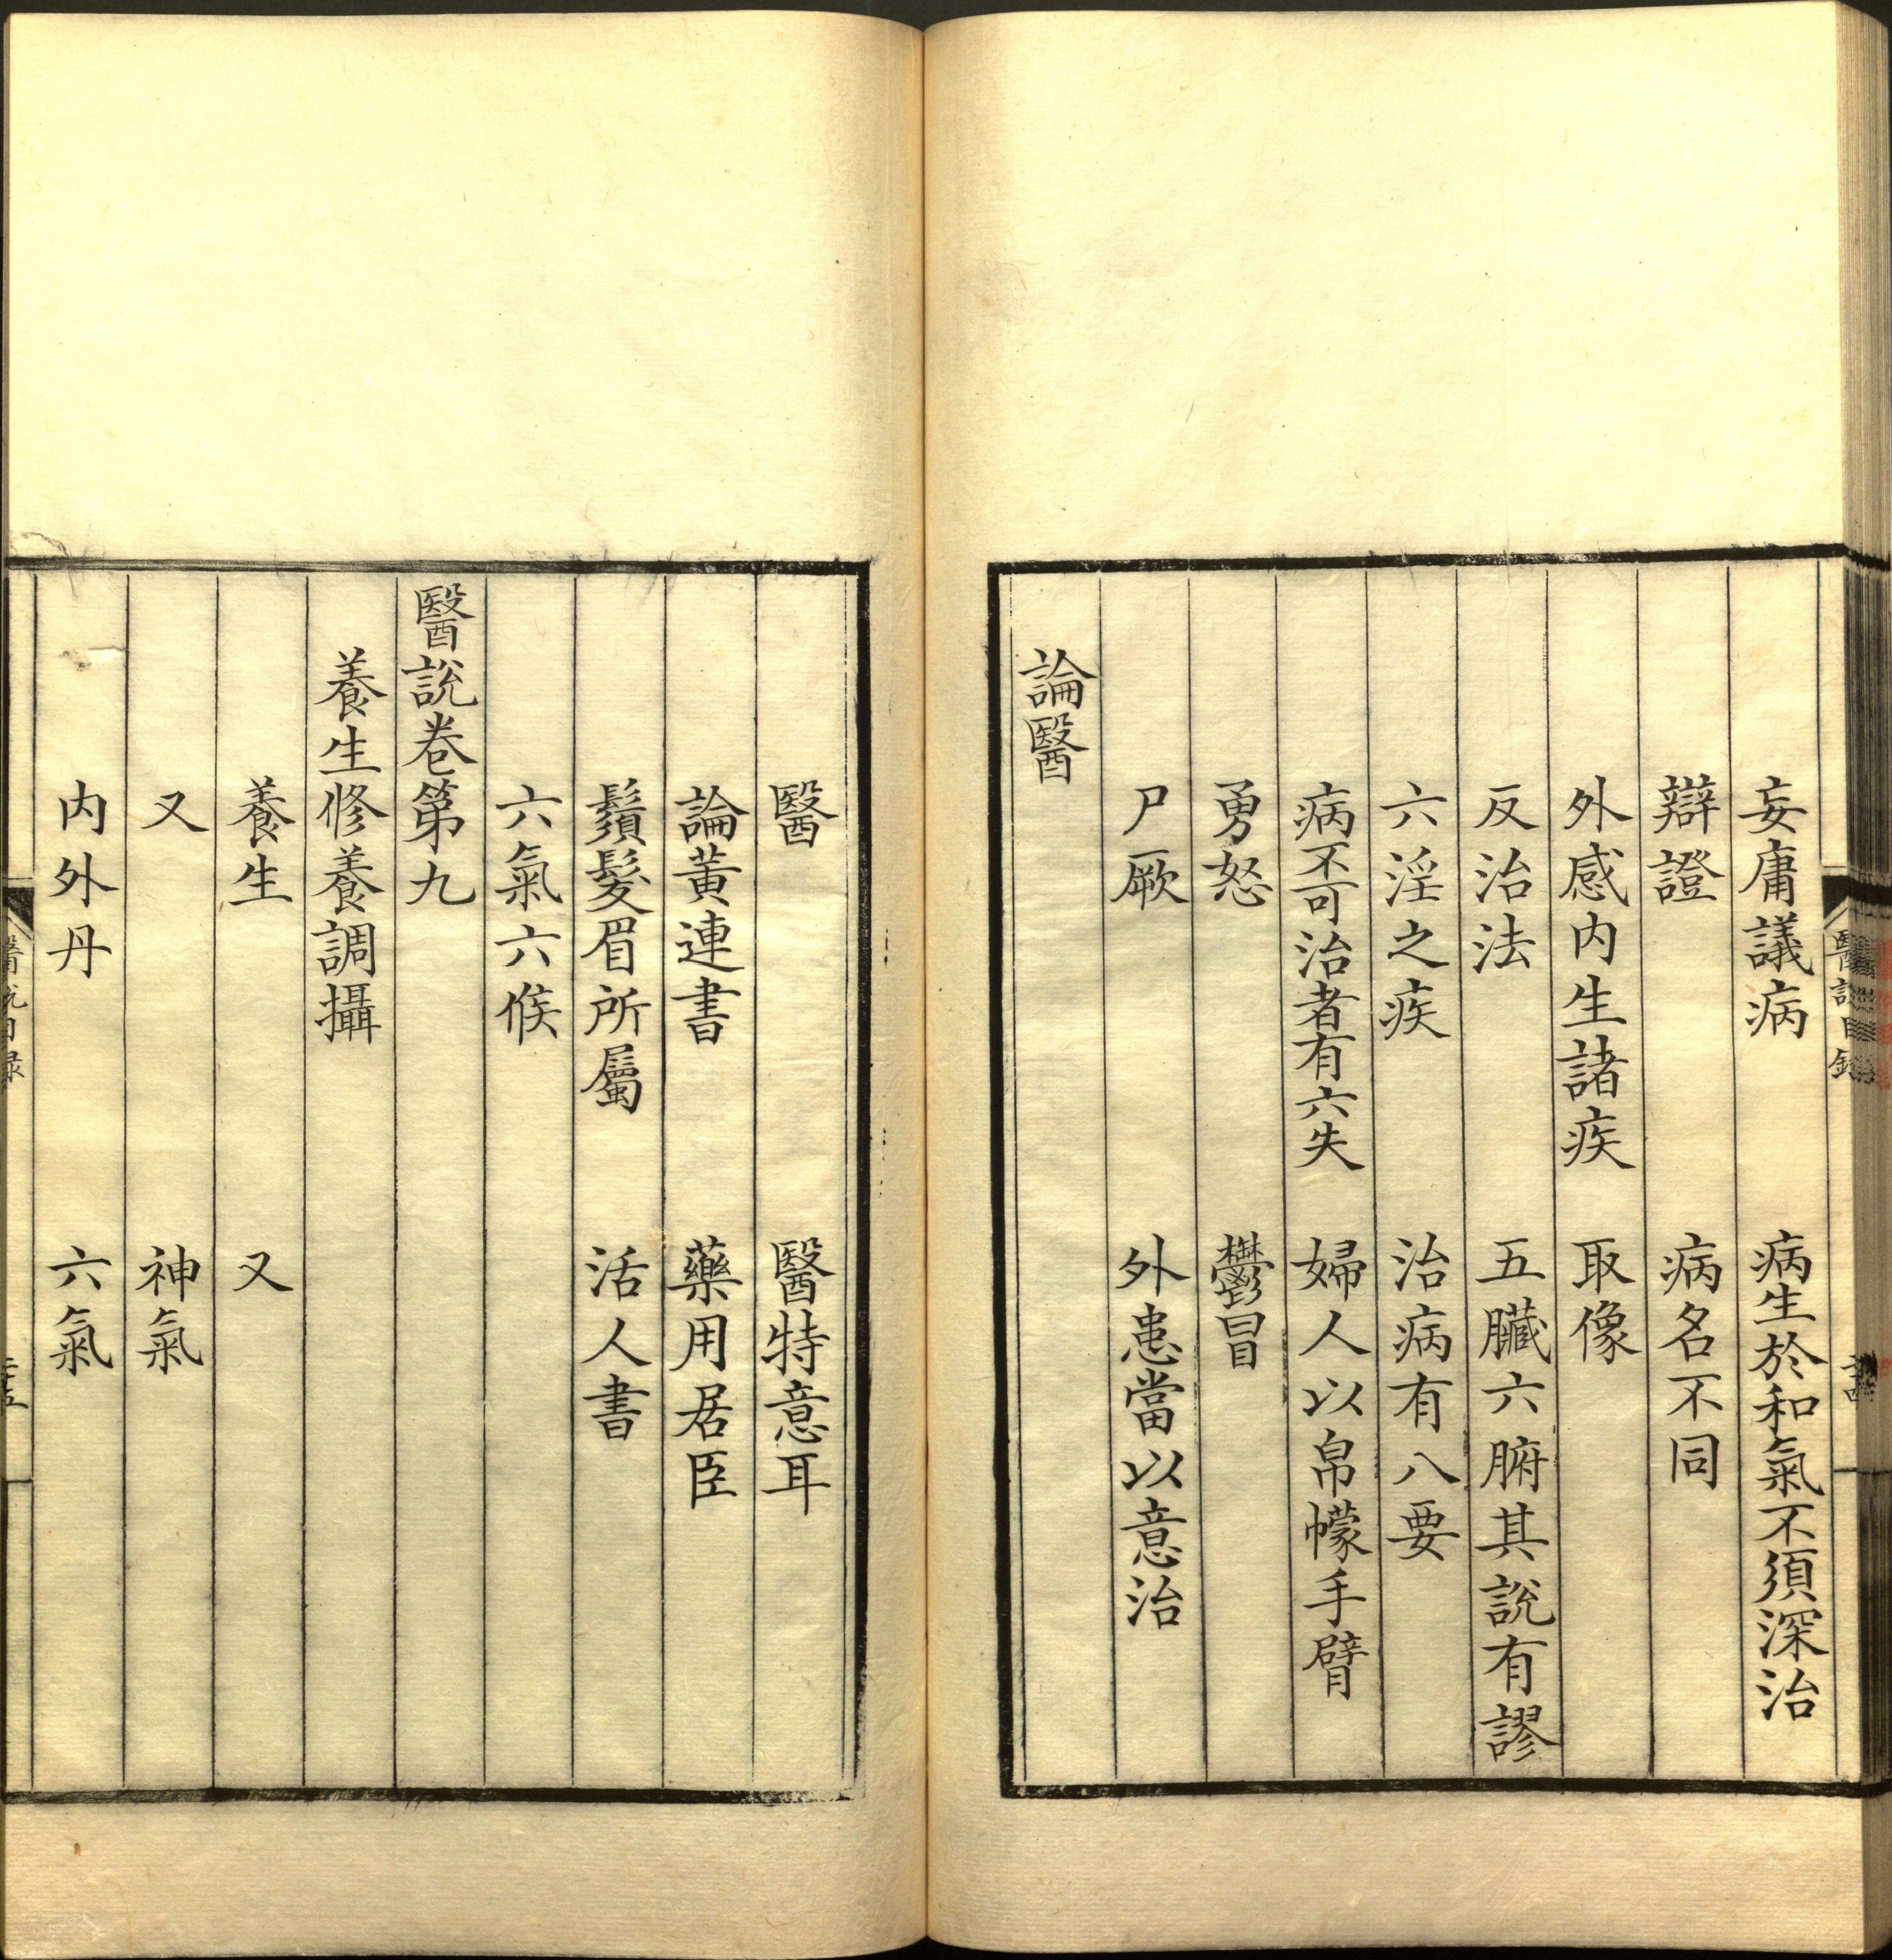 妄庸議病　病生於和氣不須深治
辯證　病名不同
外感内生諸疾　取像
反治法　五臓六腑其說有謬
六淫之疾　治病有八要
病不可治者有六失　婦人以帛幪手臂
勇怒　鬱冒
尸厥　外患當以意治
論醫
醫　醫特意耳
論黃連書　藥用君臣
鬚髮眉所屬　活人書
六氣六候
醫說卷第九
養生修養調攝
養生　又
又　神氣
内外丹　六氣
醫說目録